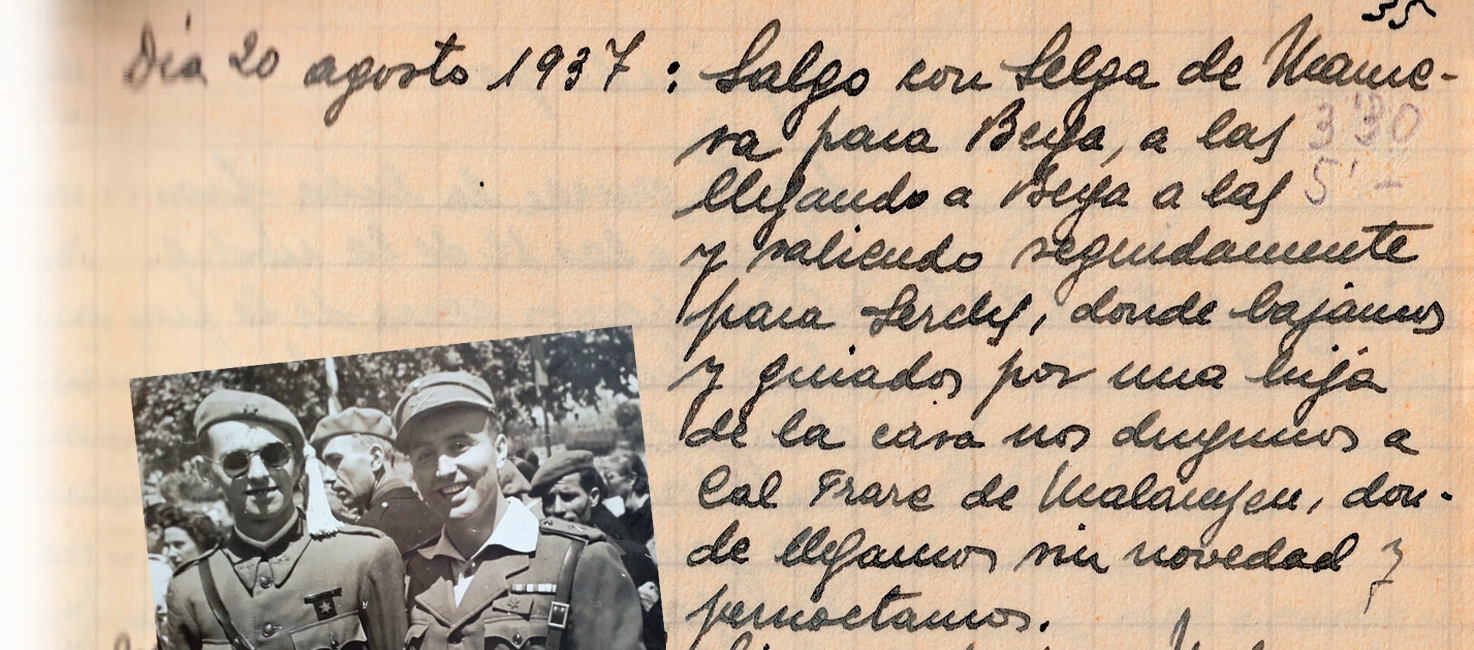 35
Día 20 agosto 1937: Salgo con Selga de Manre-
sa para Berga, a las 3'30
llegando a Berga a las 5'-
y saliendo seguidamente
para Serchs, donde bajamos
y guiados por una hija
de la casa nos dirigimos a
Cal Frare de Malanyeu, don-
de llegamos sin novedad y
pernoctamos.